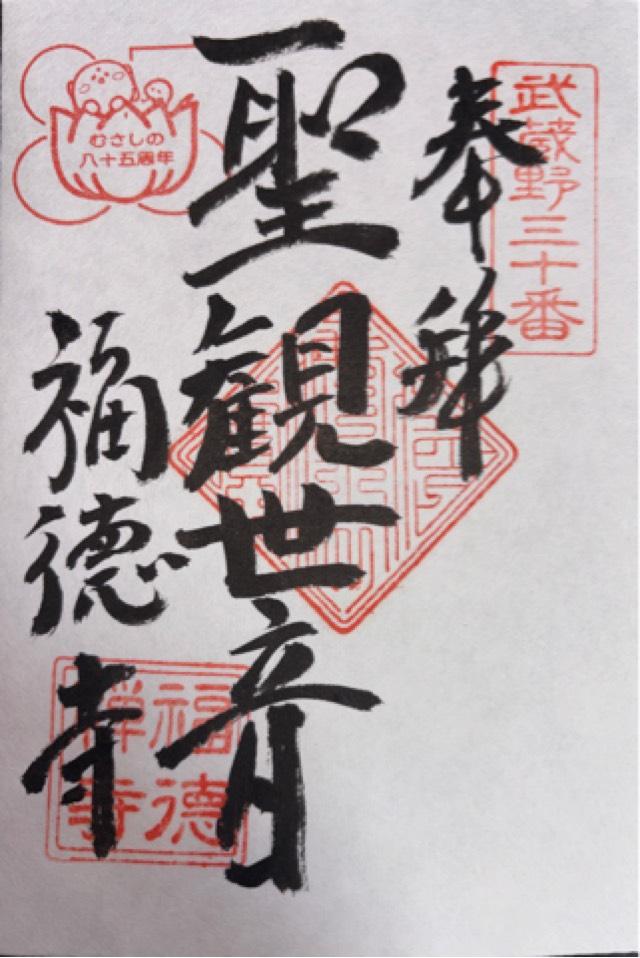 武蔵野三十番
奉拝
聖観世音
福徳寺
むさしの
八十五周年
福徳
禅寺